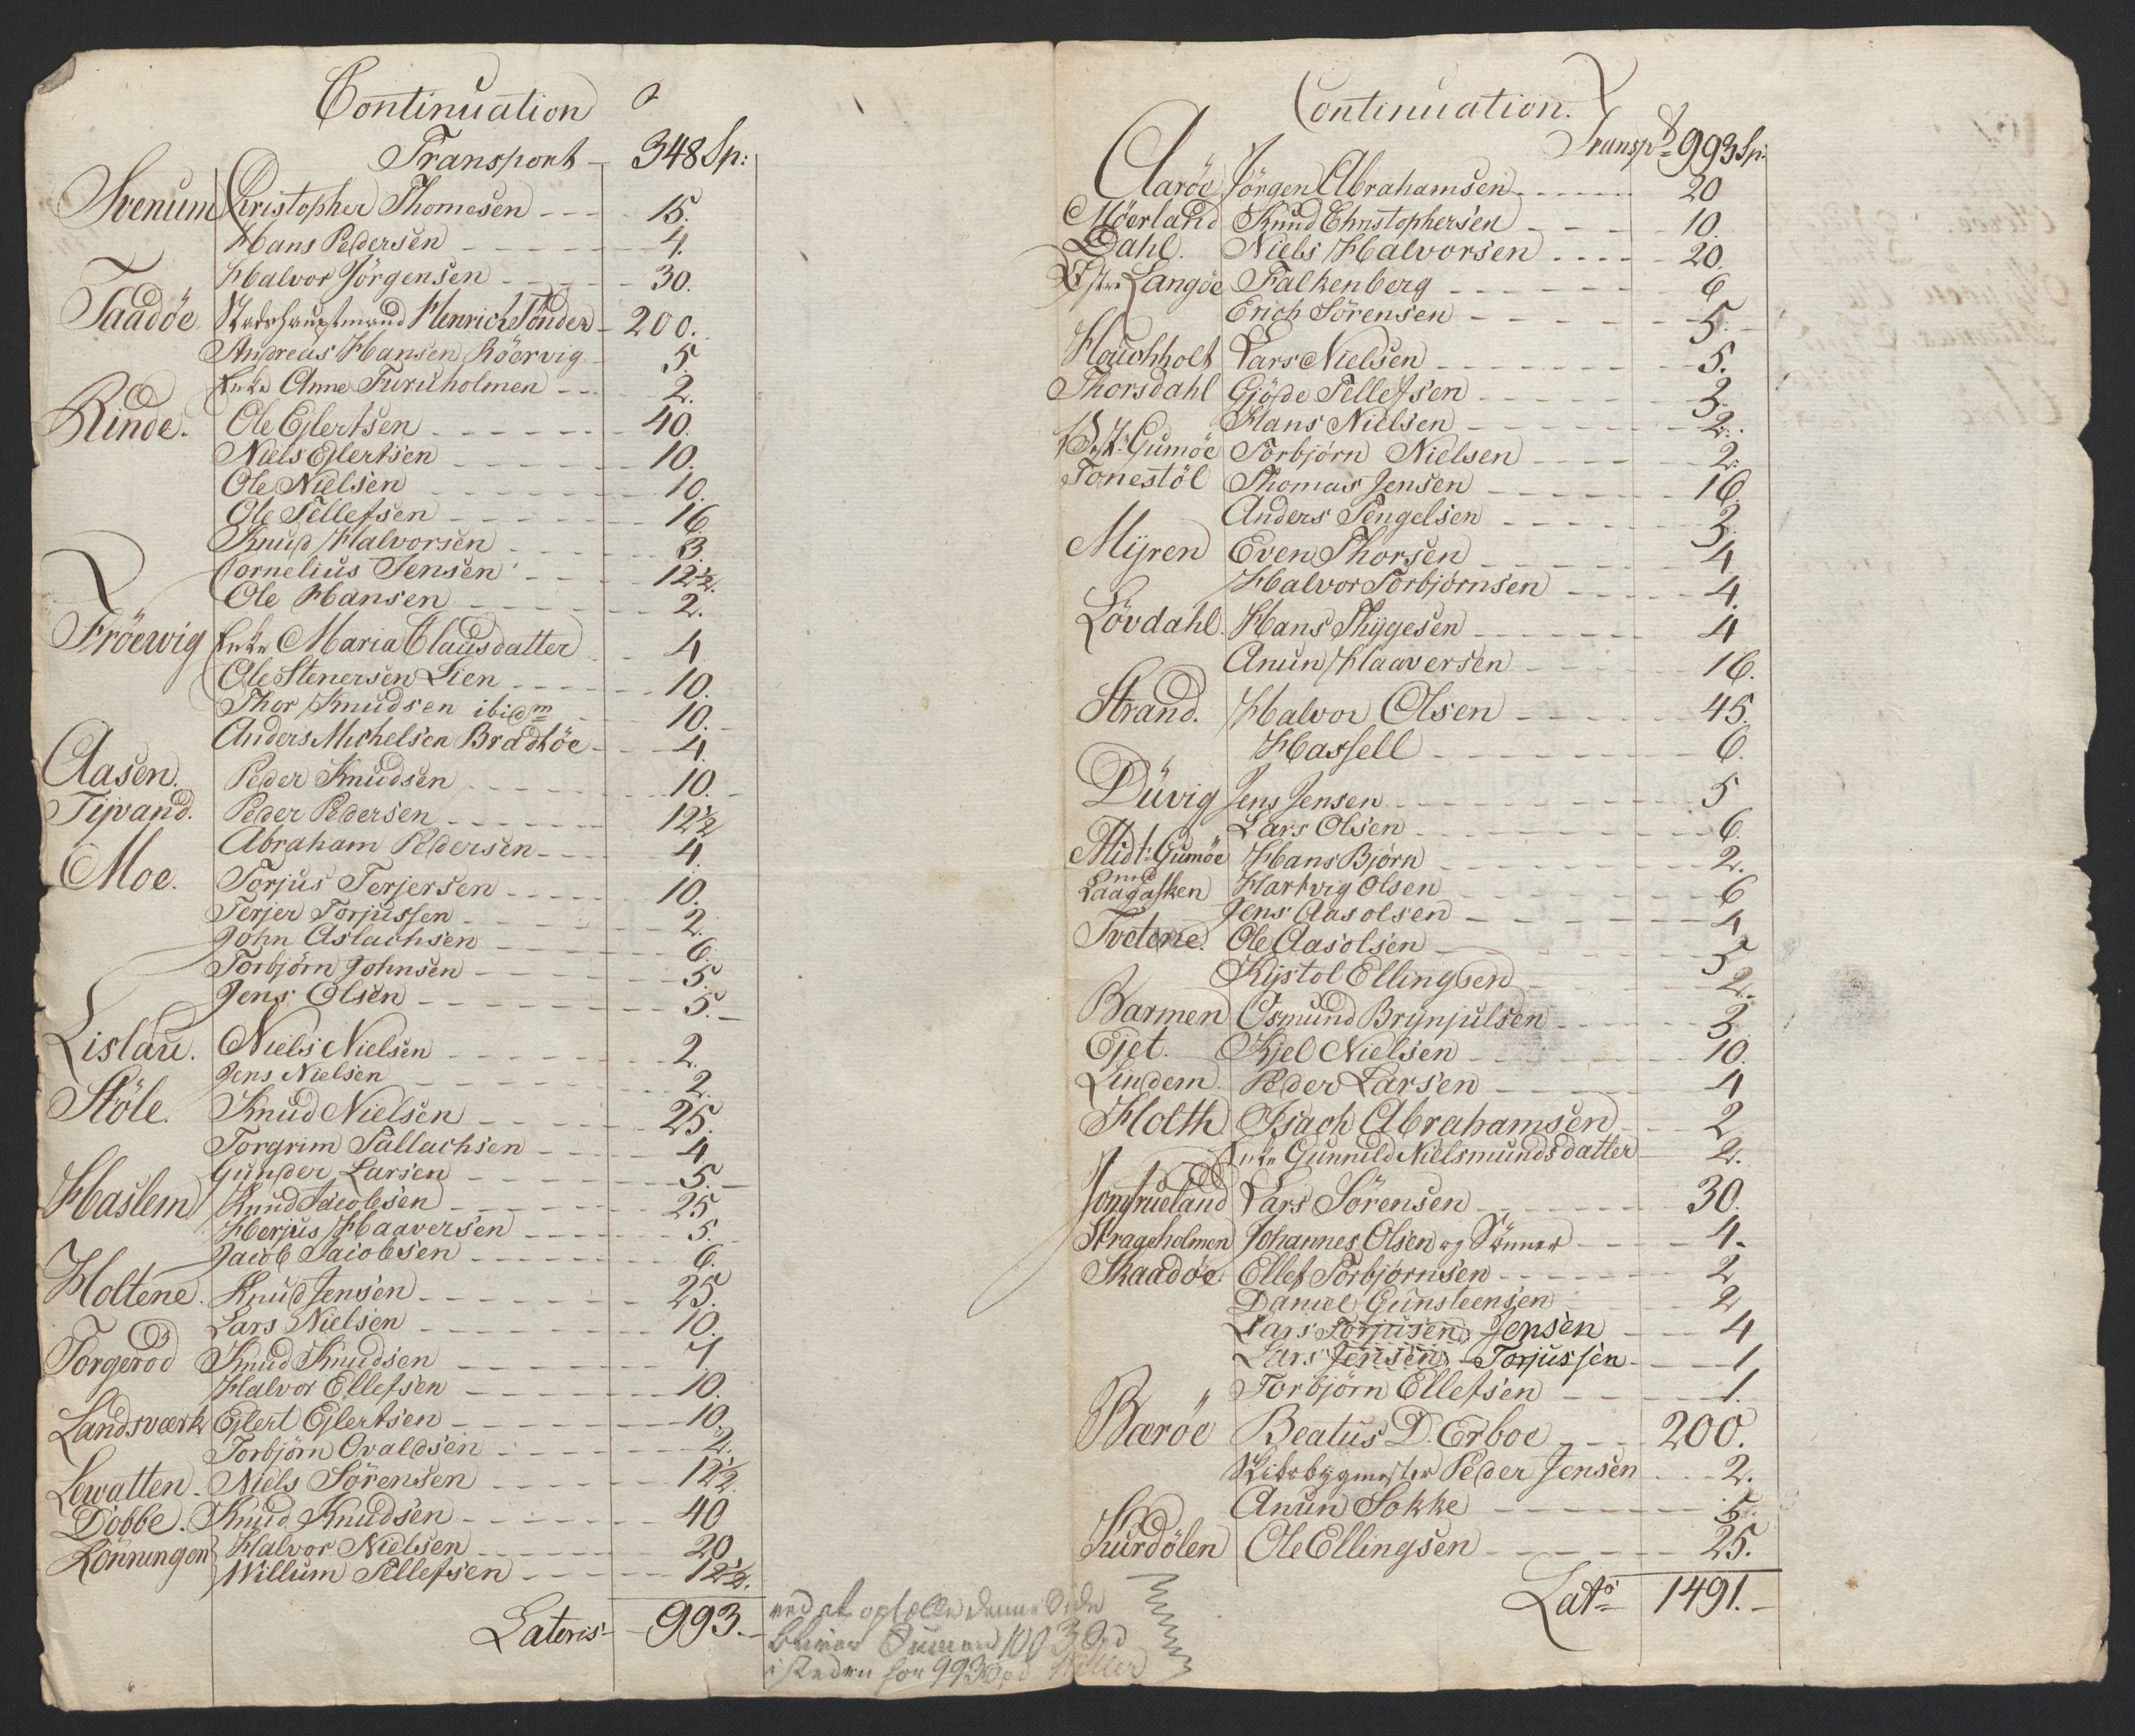 Continuation
Transport - 348 Sp:
Svenum Christopher Thomesen - - - 15.
Hans Pedersen - - - 4.
Halvor Jörgensen - - - 30.
Taadöe Stadshauptmand Henrich Tönder - 200.
Andreas Hansen Röervig - 5.
Enke Anne Furuholmen - - - 2.
Rinde. Ole Ejlertsen - - - 40.
Niels Ejlertsen - - - 10.
Ole Nielsen - - - 10.
Ole Tellefsen - - - 16.
Knud Halvorsen - - - 3.
Cornelius Jensen - - - 12½.
Ole Hansen - - - 2.
Fröewig Enke Maria Clausdatter - - 4
Ole Stenersen Lien - - - 10.
Thor Knudsen ibidm - 10. -
Anders Michelsen Bradtöe - - - 4.
Aasen. Peder Knudsen - - - 10. -
Tijvand. Peder Pedersen - - - 12½
Abraham Pedersen - - - 4.
Moe. Torjus Terjersen - - - 10.
Terjer Torjussen - - - 2.
John Aslachsen - - - 6.
Torbjörn Johnsen - - - 5.
Jens Olsen - - - 5. -
Lislau. Niels Nielsen - - - 2.
Jens Nielsen - - - 2.
Stöle. Knud Nielsen - - - 25.
Torgrim Tallachsen - - - 4
Gunder Larsen - - - 5. -
Haslem Knud Jacobsen - - - 25
Herjus Haaversen - - - 5.
Jacob Jacobsen - - - 6.
Holtene. Knud Jensen - - - 25.
Lars Nielsen - - - 10.
Torgeröd Knud Knudsen - - - 7
Halvor Ellefsen - - - 10.
Landsværk Ejlert Ejlertsen - - - 10.
Torbjörn Ovaldsen - - - 2.
Lewatten. Niels Sörensen - - - 12½.
Döbbe. Knud Knudsen - - - 40
Rönningen Halvor Nielsen - - - 20
Willum Tellefsen - - - 12½.
Lateris - 993. -
ved at optælle denne Side
bliver Summen 1003 Spd
i steden for 993 Spd
Continuation.
Transpt 993 Sp:
Aaröe Jörgen Abrahamsen - - - 20
Möerland Knud Christophersen - - - 10.
Dahl. Niels Halvorsen - - - 20.
Östre Langöe Falkenberg - - - 6
Erich Sörensen - - - 5. -
Houchholt Lars Nielsen - - - 5.
Thorsdahl Gjöde Tellefsen - - - 3.
Hans Nielsen - - - 2.
Vest: Gumöe Torbjörn Nielsen - - - 2.
Tonestöl Thomas Jensen - - - 16.
Anders Tengelsen - - - 3.
Mijren Even Thorsen - - - 4
Halvor Torbjörnsen - - - 4.
Lövdahl. Hans Thygesen - - - 4
Anun Haaversen - - - 16.
Strand. Halvor Olsen - - - 45.
Hassell - - - 6.
Düvig Jens Jensen - - - 5
Lars Olsen - - - 6.
Midt: Gumöe Hans Björn - - - 2.
Laagasken Hartvig Olsen - - - 6
Jens Aasolsen - - - 4
Tvetene. Ole Aasolsen - - - 5
Kijstol Ellingsen - - - 2.
Barmen Osmund Brynjulsen - - - 3.
Ejet. Kjel Nielsen - - - 10.
Lindem. Peder Larsen - - - 4
Holth Isach Abrahamsen - - - 2
Enke Gunnild Nielsmundsdatter 2.
Jomfrueland Lars Sörensen - - - 30.
Strageholmen Johannes Olsen og Sönner - - - 4. -
Skaadöe Ellef Torbjörnsen - - - 2
Daniel Gunsteensen 2
Lars Torjusen Jensen - - - 4
Lars Jensen - Torjussen - - - 1
" Torbjörn Ellefsen - - - 1.
Baröe Beatus D. Erboe - - - 200.
Skibsbygmester Peder Jensen - - - 2.
Anun Sokke - - - 5.
Kurdölen Ole Ellingsen - - - 25.
Lats 1491. -